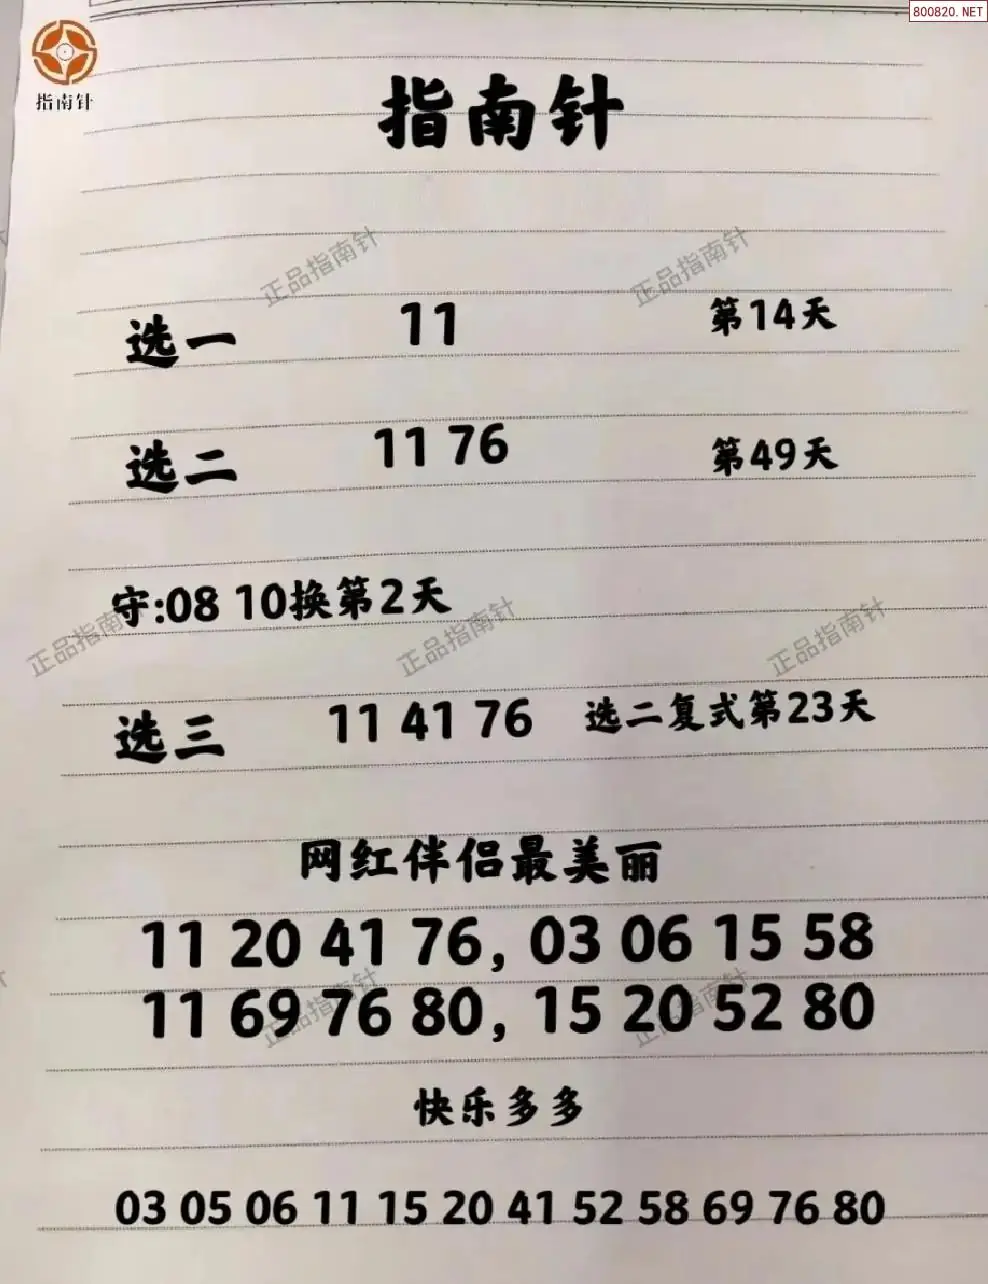 800820.NET
指南针
指南针
正品指南针 正品指南针
选一 11 第14天
选二 11 76 第49天
守:08 10换第2天
正品指南针 正品指南针 正品指南针
选三 11 41 76 选二复式第23天
网红伴侣最美丽
11 20 41 76, 03 06 15 58
11 69 76 80, 15 20 52 80
正品指南针 正品指南针
快乐多多
03 05 06 11 15 20 41 52 58 69 76 80